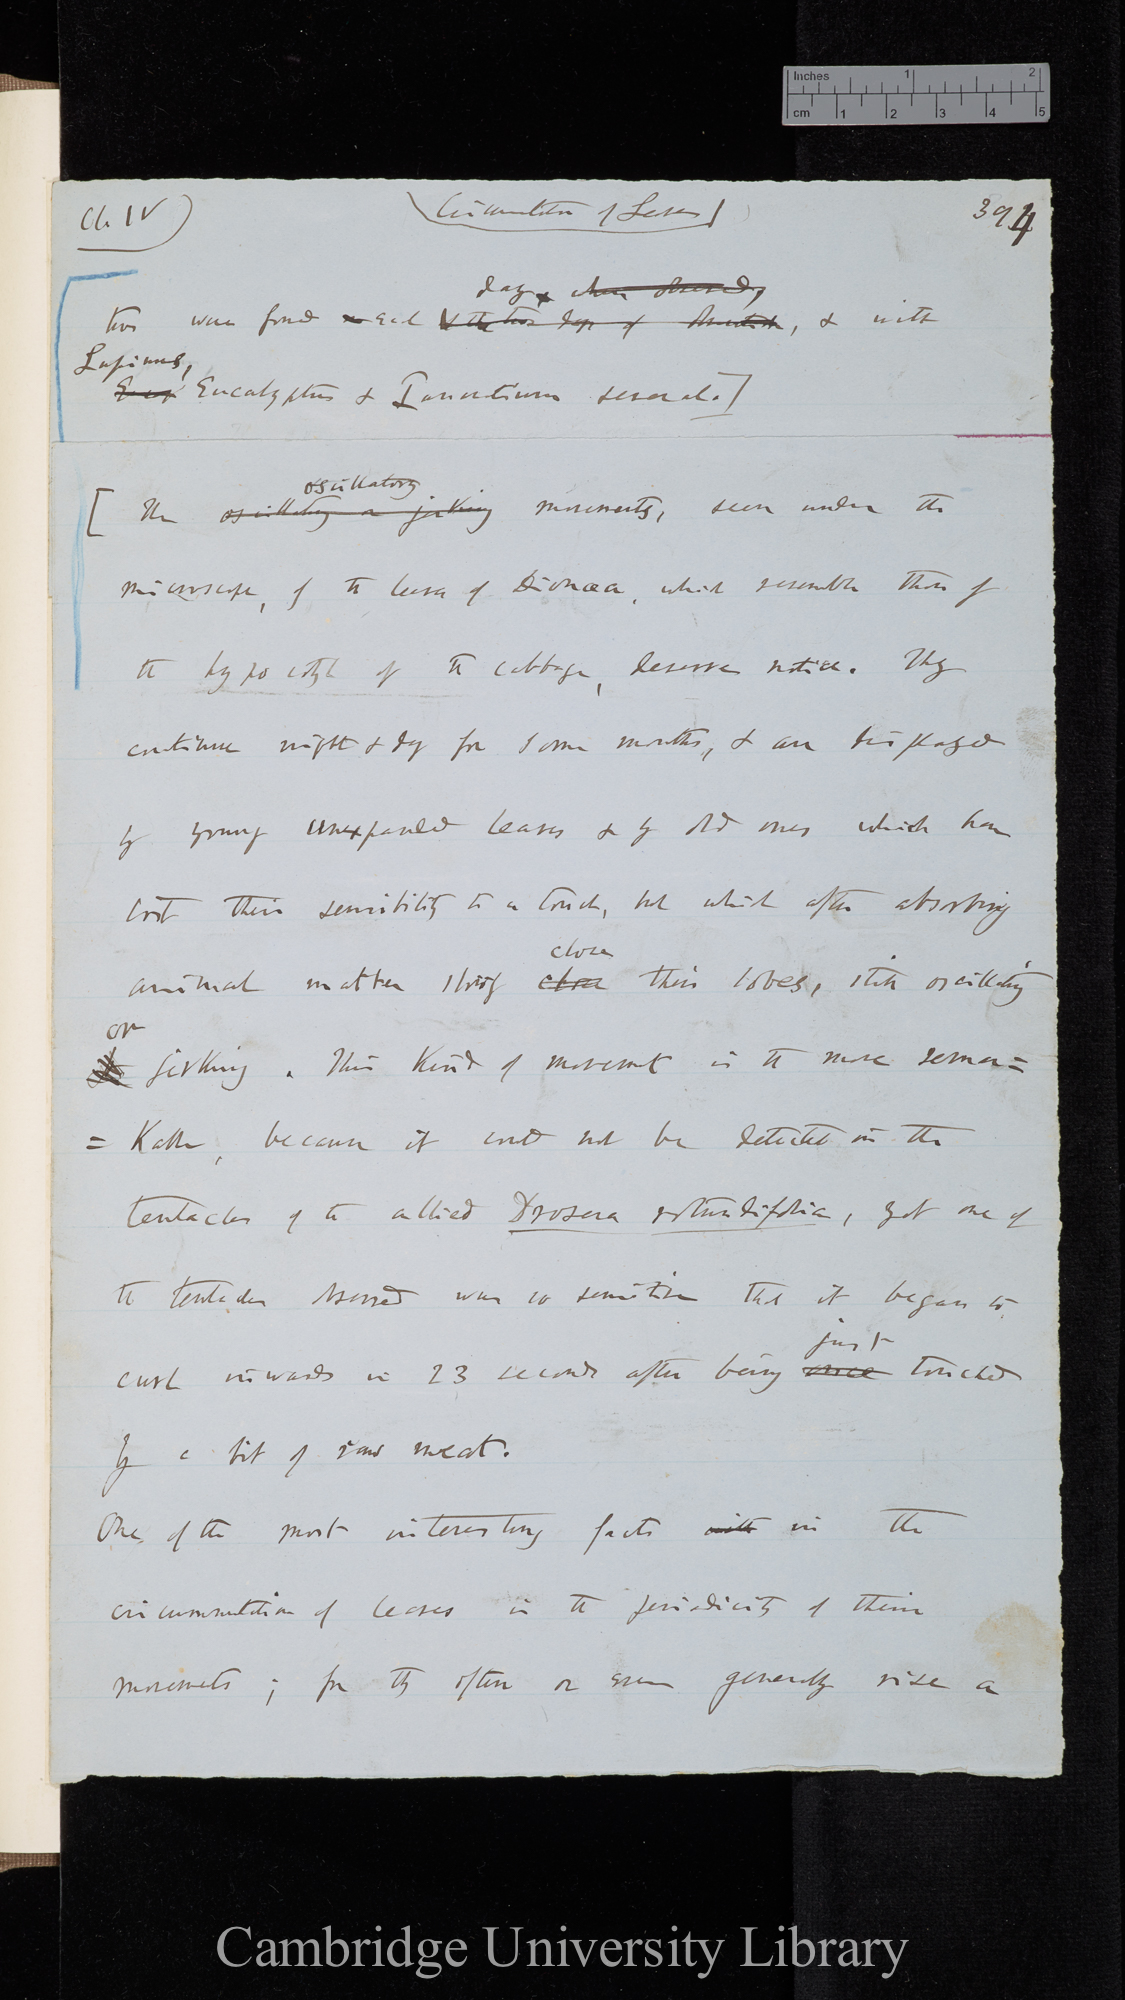 Inches 1 2
cm 1 2 3 4 5
Ch. IV
Circumnutation of Leaves
394
day when observed,
two were found each, & with
Lupinus,
Eucalyptus & several.]
oscillatory
[The oscillatory or jerking movements, seen under the
microscope, of the leaves of Dionaea, which resemble those of
the hypocotyl of the cabbage, deserve notice. They
continue night & day for some months, & are displayed
by young unexpanded leaves & by old ones which have
lost their sensibility to a touch, but which after absorbing
close
animal matter slowly close their lobes, still oscillating
or
jerking. This kind of movement is the more remar=
=kable, because it could not be detected in the
tentacles of the allied Drosera rotundifolia, yet one of
the tentacles observed was so sensitive that it began to
just
curl inwards in 23 seconds after being once touched
by a bit of raw meat.
One of the most interesting facts with in the
circumnutation of leaves is the periodicity of their
movements; for they often or even generally rise a
Cambridge University Library